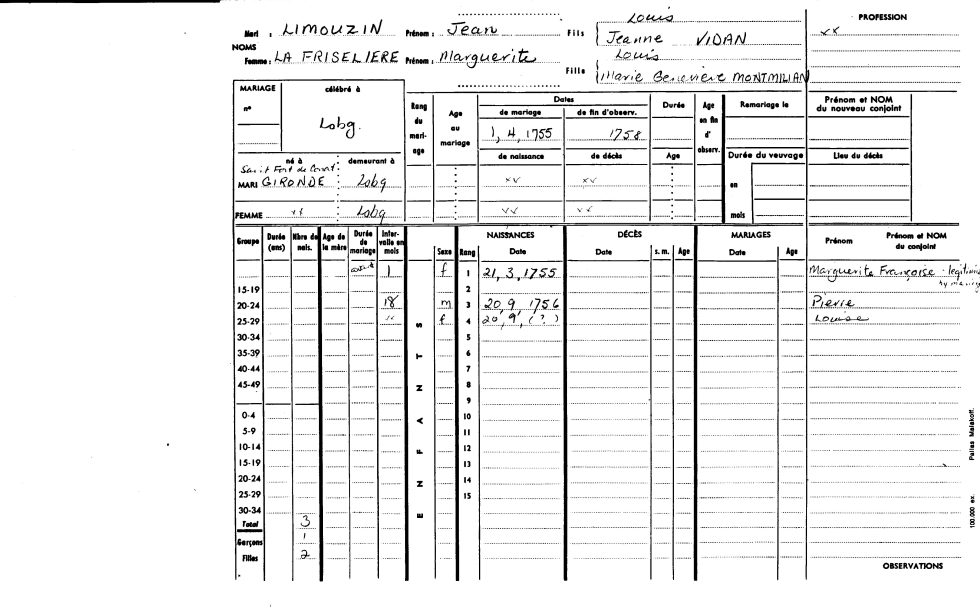 Louis
PROFESSION
Mari : LIMOUZIN Prénom : Jean Fils Jeanne VIDAN xx
NOMS
Louis
Femme : LA FRISELIERE Prénom : Marguerite
Fille Marie Genevieve MONTMILIAN
MARIAGE célébré à
n°
Lobg.
Rang du mari-age
Age au mariage
Dates
de mariage de fin d'observ.
1, 4, 1755 1758
de naissance de décès
Durée
Age
Age en fin d' observ.
Remariage le
Durée du veuvage
en
mois
Prénom et NOM du nouveau conjoint
Lieu du décès
né à demeurant à
Fort de
MARI GIRONDE Lobg xx xx
FEMME xx Lobg xx xx
Groupe Durée (ans) Nbre de nais. Age de la mère Durée de mariage Inter-valle en mois Sexe Rang
NAISSANCES Date
DÉCÈS Date s. m. Age
MARIAGES Date Age
Prénom Prénom et NOM du conjoint
ENFANTS
1 f 1 21, 3, 1755 Marguerite Françoise -
15-19 2
20-24 18 m 3 20, 9, 1756 Pierre
25-29 " f 4 20, 9, (?) Louise
30-34 5
35-39 6
40-44 7
45-49 8
9
0-4 10
5-9 11
10-14 12
15-19 13
20-24 14
25-29 15
30-34
Total 3
Garçons 1
Filles 2
OBSERVATIONS
100.000 ex. Pallas Malakoff.